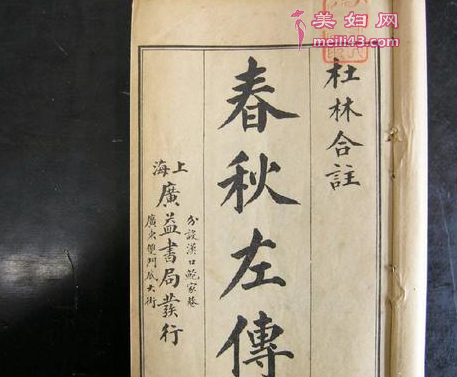 美妇网
meili43.com
杜林合註
春秋左傳
上海
廣益書局發行
分設漢口鮑家巷